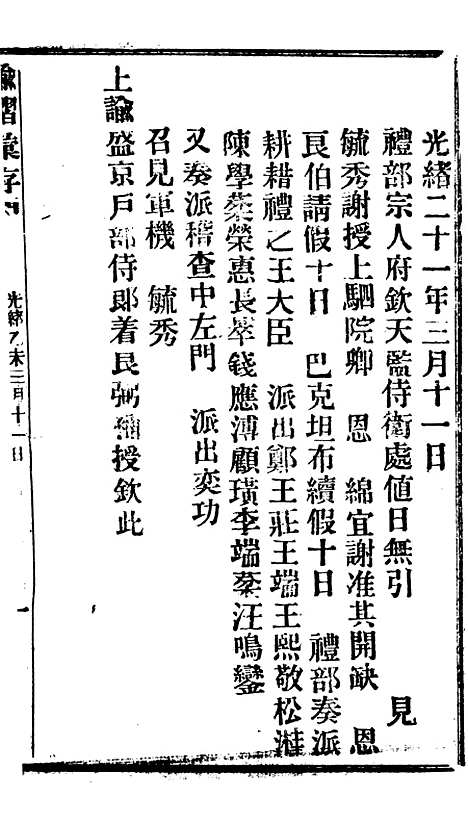 光緒二十一年三月十一日
禮部宗人府欽天監侍衛處值日無引　見
毓秀謝授上駟院卿　恩　綿宜謝准其開缺　恩
良伯請假十日　巴克坦布續假十日　禮部奏派
耕耤禮之王大臣　派出鄭王莊王端王熙敬松溎
陳學棻榮惠長萃錢應溥顧璜李端棻汪鳴鑾
又奏派稽查中左門　派出奕功
召見軍機　毓秀
上諭盛京戶部侍郎着良弼補授欽此
諭摺彙存
光緒乙未三月十一日
一